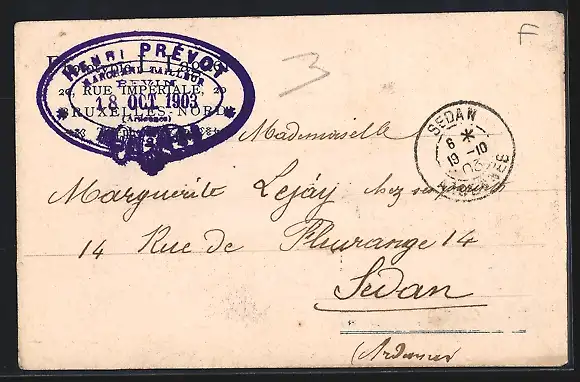 F
3
HENRI PRÉVOT
MARCHAND TAILLEUR
REVIN
20, RUE IMPÉRIALE, 20
18 OCT 1903
BRUXELLES-NORD
(Ardennes)
SEDAN
6 *
19 -10
03
Mademoiselle
Marguerite Lejay chez
14 Rue de Fleurange 14
Sedan
(Ardennes